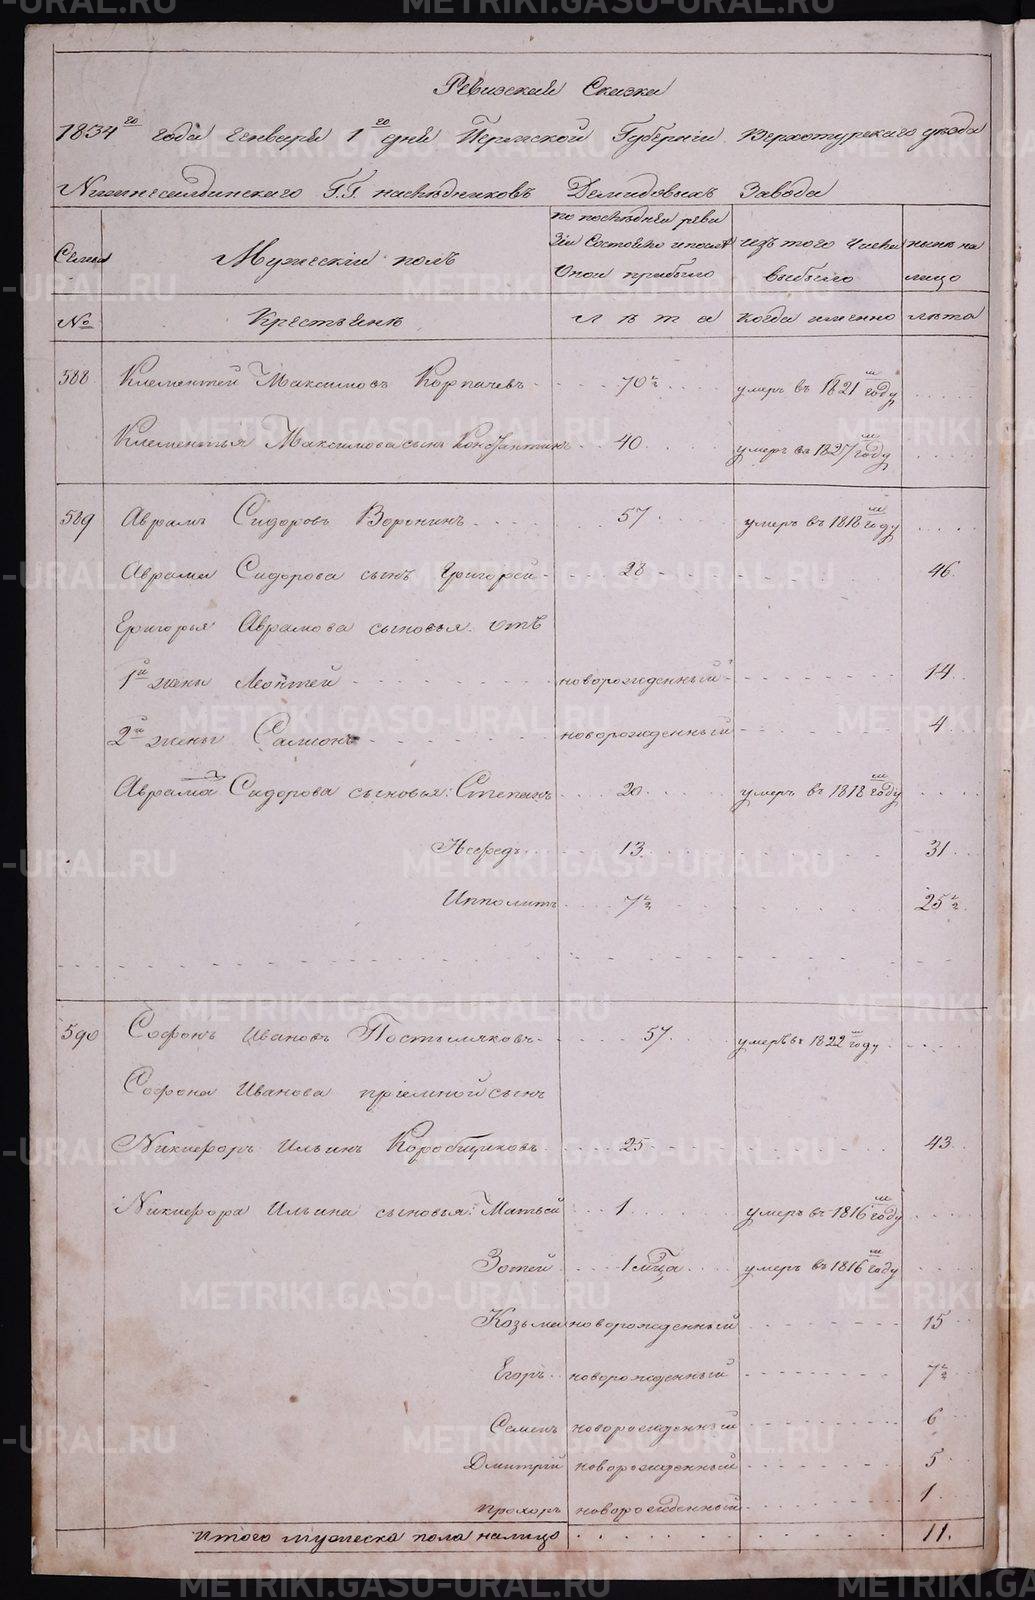 Ревизская Сказка
1834го года Генваря 1го дня Пермской Губернии Верхотурскаго уезда
Нижнесалдинскаго Г.Г. наследниковъ Демидовыхъ Завода
Семьи № | Мужескій полъ | по последней ревизіи Состояло и после Оной прибыло | изъ того числа выбыло | ныне на лицо
Крестьяне | лѣта | когда именно | лѣта
588 Клементей Максимовъ Корпачевъ 70½ умеръ въ 1821м году
Клементья Максимова сынъ Константинъ 40 умеръ въ 1827м году
589 Аврамъ Сидоровъ Воронинъ 57 умеръ въ 1818м году
Аврама Сидорова сынъ Григорей 28 46
Григорья Аврамова сыновья отъ
1й жены Леонтей новорожденный 14
2й жены Самсонъ новорожденный 4
Аврама Сидорова сыновья: Степанъ 20 умеръ въ 1818м году
13 31
Ипполитъ 7½ 25½
590 Софонъ Ивановъ Постыляковъ 57 умеръ въ 1822м году
Софона Иванова пріемной сынъ
Никифоръ Ильинъ Коробщиковъ 25 43
Никифора Ильина сыновья: Матвей 1 умеръ въ 1816м году
Зотей 1 мца умеръ въ 1816м году
Козьма новорожденный 15
Егоръ новорожденный 7½
Семенъ новорожденный 6
Дмитрій новорожденный 5
Прохоръ новорожденный 1
Итого мужеска пола налицо 11.
METRIKI.GASO-URAL.RU